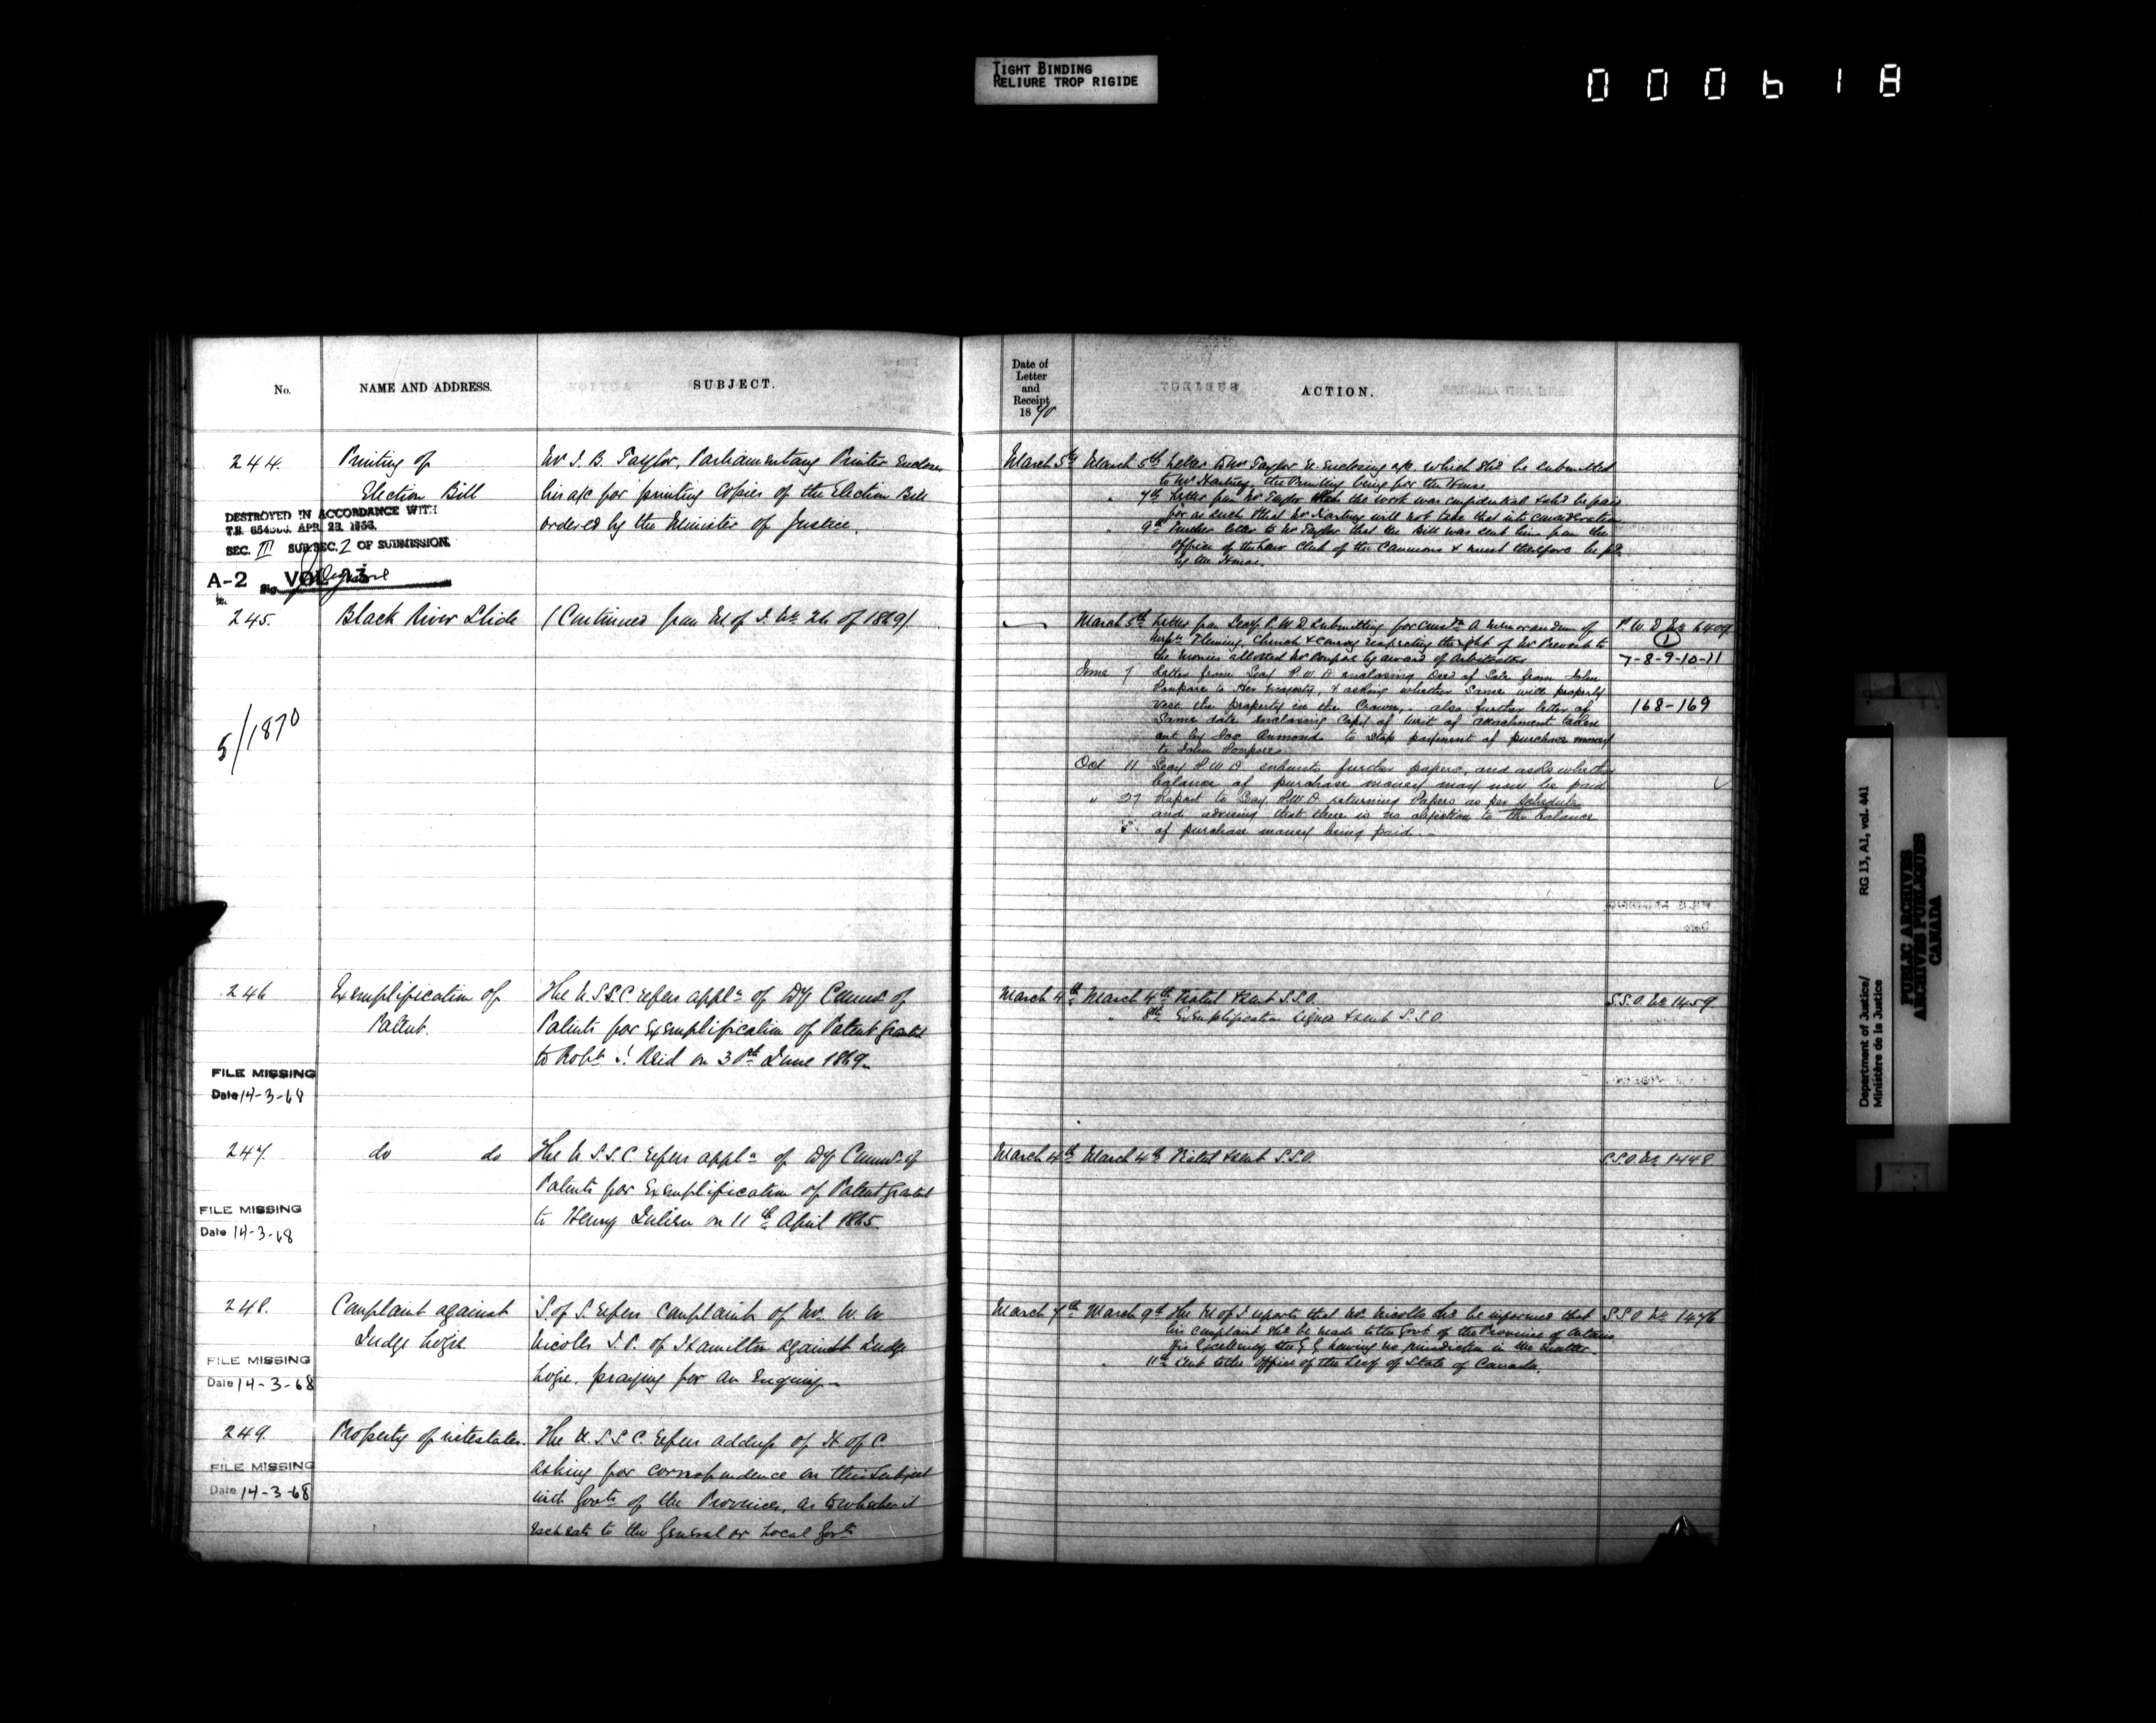 TIGHT BINDING
RELIURE TROP RIGIDE
000618
No. NAME AND ADDRESS. SUBJECT.
Date of
Letter
and
Receipt
1870
ACTION.
244. Printing of Mr I. B. Taylor, Parliamentary Printer Encloses
Election Bill his a/c for printing Copies of the Election Bill
ordered by the Minister of Justice.
DESTROYED IN ACCORDANCE WITH
T.B. APR. 23, 1953.
SEC. III SUB SEC. 2 OF SUBMISSION.
A-2 VOL 23
March 5th March 5th Letter to Mr Taylor re-enclosing a/c. which shd be submitted
to Mr Hartney, the Printing being for the House.
" 7th Letter from Mr Taylor that the work was confidential & shd be paid
for as such & that Mr Hartney will not take that into consideration
" 9th Further letter to Mr Taylor that the Bill was sent him from the
Office of the Law Clerk of the Commons & must therefore be pd.
by the House.
245. Black River Slide (Continued from M of J. No. 26 of 1869)
5/1870
March 5th Letter from Secy P. W. D. submitting for consdn A Memorandum of
Fleming, Church & respecting the right of Mr Prevost to
the monies allotted Mr Poupore by award of Arbitrators
June 7 Letter from Secy P.W.D. enclosing Deed of Sale from John
Poupore to Her Majesty, & asking whether same will properly
vest the property in the Crown,. also further letter of
same date enclosing Copy of Writ of attachment taken
out by Aumond to stop payment of purchase money
to John Poupore
Oct 11 Secy P.W.D. submits further papers, and asks whether
balance of purchase money may now be paid
" 27 Report to Secy. P.W.D. returning Papers as per Schedule
and advising that there is no objection to the balance
of purchase money being paid.
P. W. D No 6409
1
7-8-9-10-11
168-169
246 Exemplification of The U.S.S.C. refers appln of Dy Commr of
Patent. Patents for Exemplification of Patent granted
to Robt Reid on 30th June 1869
FILE MISSING
Date 14-3-68
March 4th March 4th & sent S.S.O.
" 8th Exemplification signed & sent S.S.O
S.S.O. No 1459
247. do do The U.S.S.C. refers appln of Dy Commr of
Patents for Exemplification of Patent granted
to Henry on 11th April 1865.
FILE MISSING
Date 14-3-68
March 4th March 4th & sent S.S.O.
S.S.O. No 1448
248. Complaint against S. of S. refers complaint of Mr. W. W
Judge Logie. Nicolls J.P. of Hamilton against Judge
Logie. praying for an Enquiry
FILE MISSING
Date 14-3-68
March 7th March 9th The M of J reports that Mr. Nicolls shd be informed that
his complaint shd be made to the Govt of the Province of Ontario
His Excellency the G G having no jurisdiction in the matter.
" 11th sent to the Office of the Secy of State of Canada.
S.S.O. No 1476
249. Property of intestates. The U.S.S.C. refers address of H of C.
asking for correspondence on this subject
with Govts of the Provinces, as to whether it
escheats to the General or Local Govts
FILE MISSING
Date 14-3-68
Department of Justice/
Ministère de la Justice
RG 13, A1, vol. 441
PUBLIC ARCHIVES
ARCHIVES PUBLIQUES
CANADA